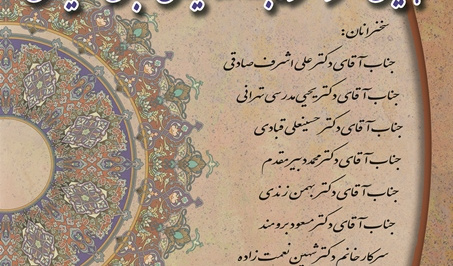 سخنرانان:
جناب آقای دکتر علی اشرف صادقی
جناب آقای دکتر یحیی مدرسی تهرانی
جناب آقای دکتر حسینعلی قبادی
جناب آقای دکتر محمد دبیرمقدم
جناب آقای دکتر بهمن زندی
جناب آقای دکتر مسعود برومند
سرکار خانم دکتر شهین نعمت زاده